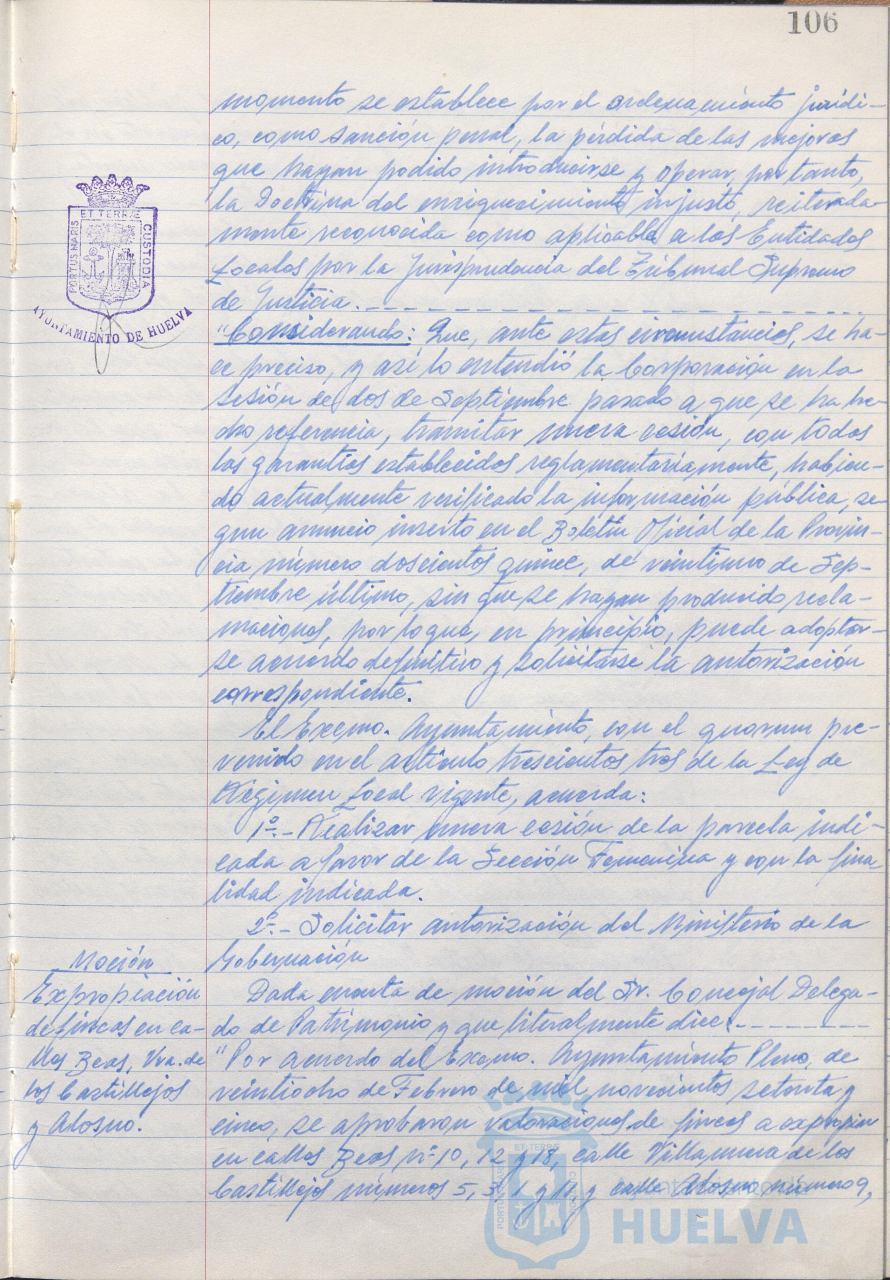 106
momento se establece por el ordenamiento jurídi-
co, como sanción penal, la pérdida de las mejoras
que hayan podido introducirse y operar, por tanto,
la Doctrina del enriquecimiento injusto, reiterada-
mente reconocida como aplicable a las Entidades
Locales por la Jurisprudencia del Tribunal Supremo
de Justicia.
"Considerando: Que, ante estas circunstancias, se ha-
ce preciso, y así lo entendió la Corporación en la
sesión de dos de Septiembre pasado a que se ha he-
cho referencia, tramitar nueva cesión, con todas
las garantías establecidas reglamentariamente, habien-
do actualmente verificado la información pública, se-
gun anuncio inserto en el Boletín Oficial de la Provin-
cia número doscientos quince, de veintiuno de Sep-
tiembre último, sin que se hayan producido recla-
maciones, por lo que, en principio, puede adoptar-
se acuerdo definitivo y solicitarse la autorización
correspondiente.
El Excmo. Ayuntamiento, con el quorum pre-
venido en el artículo trescientos tres de la Ley de
Régimen Local vigente, acuerda:
1º.- Realizar nueva cesión de la parcela indi-
cada a favor de la Sección Femenina y con la fina-
lidad indicada.
2º.- Solicitar autorización del Ministerio de la
Gobernación
Dada cuenta de moción del Sr. Concejal Delega-
do de Patrimonio y que literalmente dice:
"Por acuerdo del Excmo. Ayuntamiento Pleno, de
veintiocho de Febrero de mil novecientos setenta y
cinco, se aprobaron valoraciones de fincas a expropiar
en calles Beas nº 10, 12 y 18, calle Villanueva de los
Castillejos números 5, 3, 1 y 11, y calle Alosno número 9,
Moción
Expropiación
de fincas en ca-
lles Beas, Vva. de
los Castillejos
y Alosno.
PORTUS MARIS ET TERRÆ CUSTODIA
AYUNTAMIENTO DE HUELVA
HUELVA